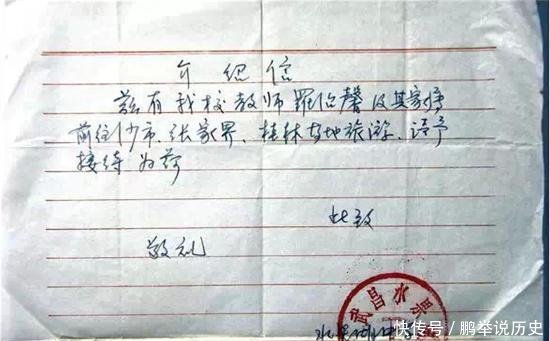 介绍信
兹有我校教师罗伯馨及其家属
前往沙市、张家界、桂林等地旅游、请予
接待为荷
此致
敬礼
武昌水果
水果湖中
快传号／鹏举说历史